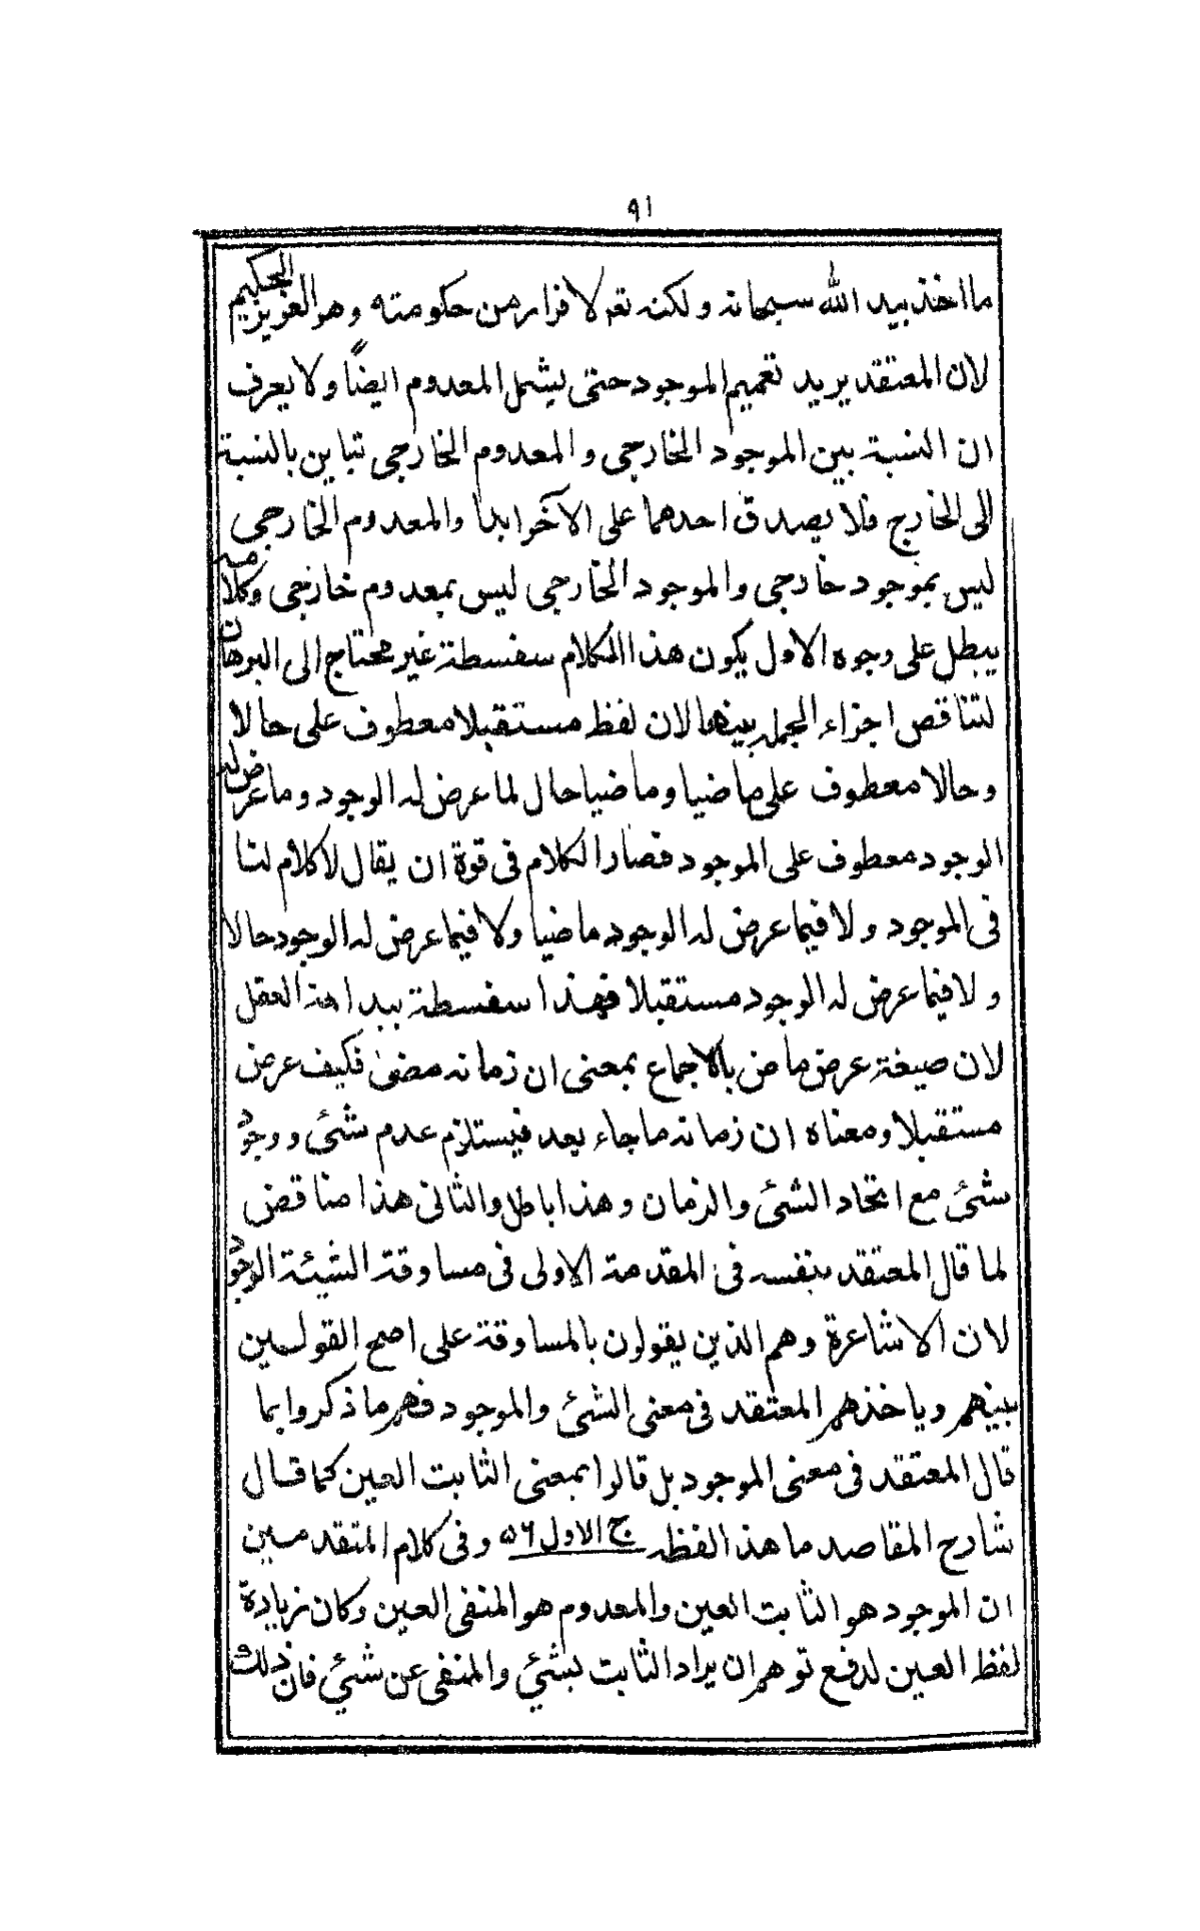 ٩١
ما اخذ بيد الله سبحانه ولكنه نعم لا فرار من حكومته وهو العزيز الحكيم
لان المعتقد يريد تعميم الموجود حتى يشمل المعدوم ايضًا ولا يعرف
ان النسبة بين الموجود الخارجى والمعدوم الخارجى تباين بالنسبة
الى الخارج فلا يصدق احدهما على الآخر ابدا والمعدوم الخارجى
ليس بموجود خارجى والموجود الخارجى ليس بمعدوم خارجى وكلامه
يبطل على وجوه الاول يكون هذا الكلام سفسطة غير محتاج الى البرهان
لتناقص اجزاء الجمله بينها لان لفظ مستقبلا معطوف على حالا
وحالا معطوف على ماضيا وماضيا حال لما عرض له الوجود وما عرض له
الوجود معطوف على الموجود فصار الكلام فى قوة ان يقال لا كلام لنا
فى الموجود ولا فيما عرض له الوجود ماضيا ولا فيما عرض له الوجود حالا
ولا فيما عرض له الوجود مستقبلا فهذا سفسطة ببداهة العقل
لان صيغة عرض ماض بالاجماع بمعنى ان زمانه مضى فكيف عرض
مستقبلا ومعناه ان زمانه ما جاء بعد فيستلزم عدم شئ ووجود
شئ مع اتحاد الشئ والزمان وهذا باطل والثانى هذا مناقض
لما قال المعتقد بنفسه فى المقدمة الاولى فى مساوقة الشيئة الوجود
لان الاشاعرة وهم الذين يقولون بالمساوقة على اصح القولين
بينهم وياخذهم المعتقد فى معنى الشئ والموجود فهم ما ذكروا بما
قال المعتقد فى معنى الموجود بل قالوا بمعنى الثابت العين كما قال
شارح المقاصد ما هذا لفظه ج الاول ٥٦ وفى كلام المتقدمين
ان الموجود هو الثابت العين والمعدوم هو المنفى العين وكان زيادة
لفظ العين لدفع توهم ان يراد الثابت بشئ والمنفى عن شئ فان ذلك